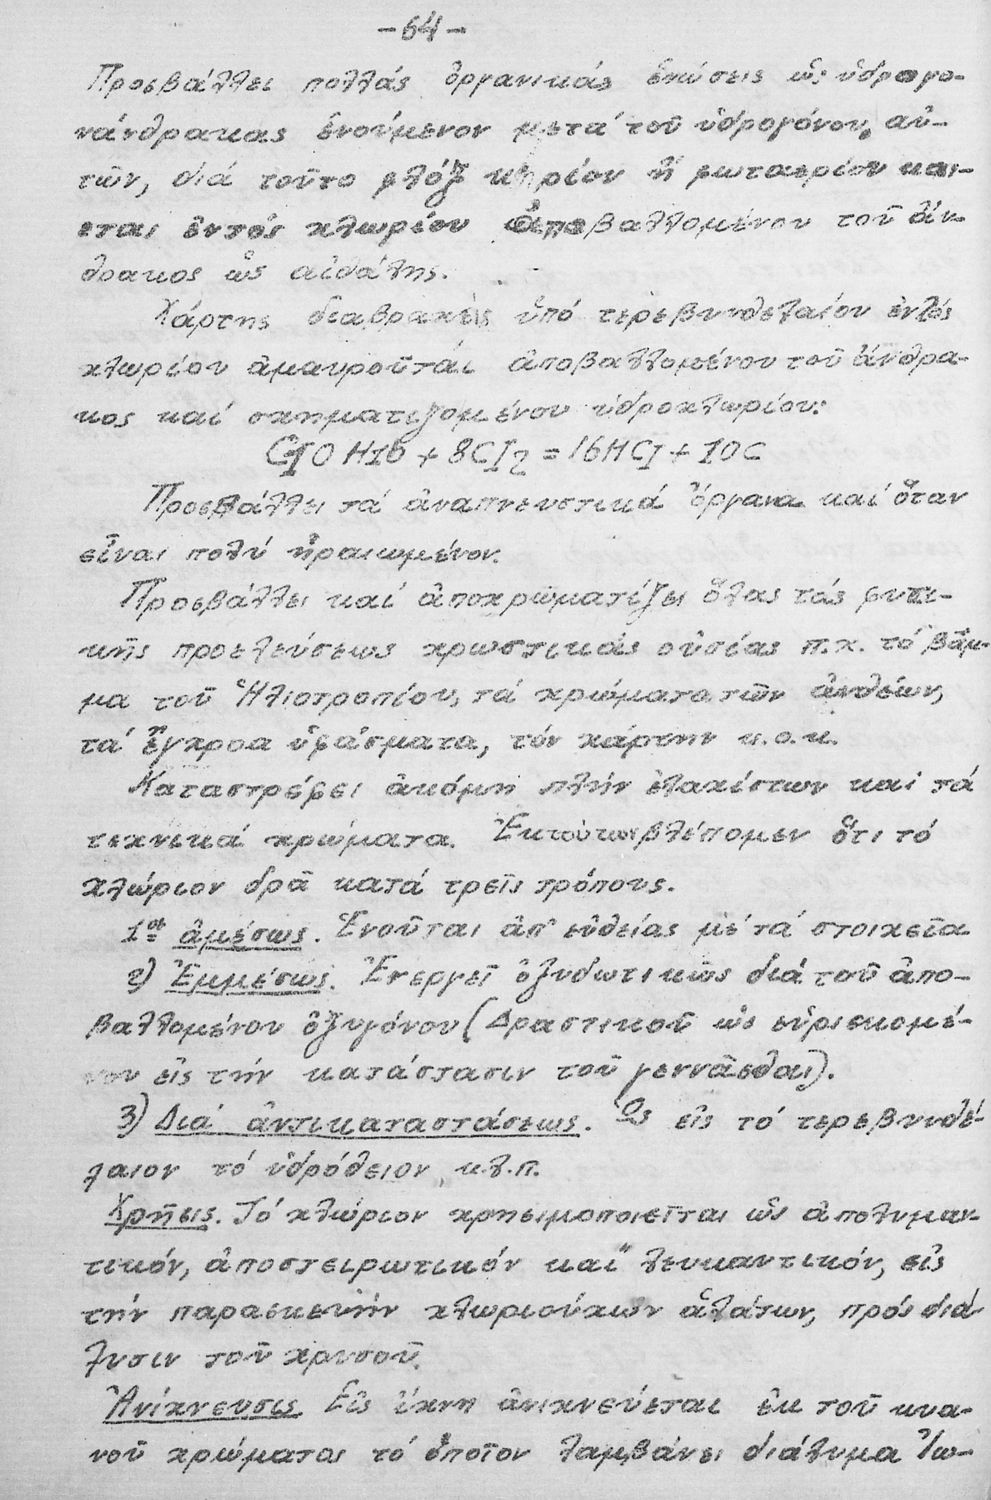 -64-
Προσβάλλει πολλάς ὀργανικάς ἑνώσεις ὡς ὑδρογο-
νάνθρακας ἑνούμενον μετά τοῦ ὑδρογόνου αὐ-
τῶν, διά τοῦτο φλόξ κηρίον ἤ φωταερίου καί-
εται ἐντός χλωρίου ἀποβαλλομένου τοῦ ἄν-
θρακος ὡς αἰθάλης.
Χάρτης διαβραχείς ὑπό τερεβινθελαίου ἐντός
χλωρίου ἀμαυροῦται ἀποβαλλομένου τοῦ ἄνθρα-
κος καί σχηματιζομένου ὑδροχλωρίου:
C10 H16 + 8Cl2 = 16HCl + 10C
Προσβάλλει τά ἀναπνευστικά ὄργανα καί ὅταν
εἶναι πολύ ἠραιωμένον.
Προσβάλλει καί ἀποχρωματίζει ὅλας τάς φυτι-
κῆς προελεύσεως χρωστικάς οὐσίας π.χ. τό βάμ-
μα τοῦ Ἡλιοτροπίου, τά χρώματα τῶν ἀνθέων,
τά ἔγχροα ὑφάσματα, τόν χάρτην κ.ο.κ.
Καταστρέφει ἀκόμη πλήν ἐλαχίστων καί τά
τεχνικά χρώματα. Ἐκ τούτων βλέπομεν ὅτι τό
χλώριον δρᾶ κατά τρεῖς τρόπους.
1ον ἀμέσως. Ἑνοῦται ἀπ' εὐθείας μέ τά στοιχεῖα
2) Ἐμμέσως. Ἐνεργεῖ ὀξυδωτικῶς διά τοῦ ἀπο-
βαλλομένου ὀξυγόνου (Δραστικοῦ ὡς εὑρισκομέ-
νου εἰς τήν κατάστασιν τοῦ γεννᾶσθαι).
3) Διά ἀντικαταστάσεως. Ὡς εἰς τό τερεβινθέ-
λαιον τό ὑδρόθειον κ.λ.π.
Χρῆσις. Τό χλώριον χρησιμοποιεῖται ὡς ἀπολυμαν-
τικόν, ἀποστειρωτικόν καί λευκαντικόν, εἰς
τήν παρασκευήν χλωριούχων ἁλάτων, πρός διά
λυσιν τοῦ χρυσοῦ.
Ἀνίχνευσις. Εἰς ἴχνη ἀνιχνεύεται ἐκ τοῦ κυα-
νοῦ χρώματος τό ὁποῖον λαμβάνει διάλυμα Ἰω-